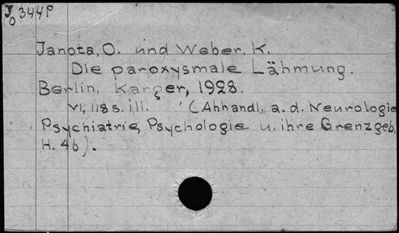 J 344P
o
Janota, O. und Weber, K.
Die paroxysmale Lähmung.
Berlin, Karger, 1928.
VI, 118 s. ill. (Abhandl. a. d. Neurologie
Psychiatrie, Psychologie u. ihre Grenzgeb.
H. 46).